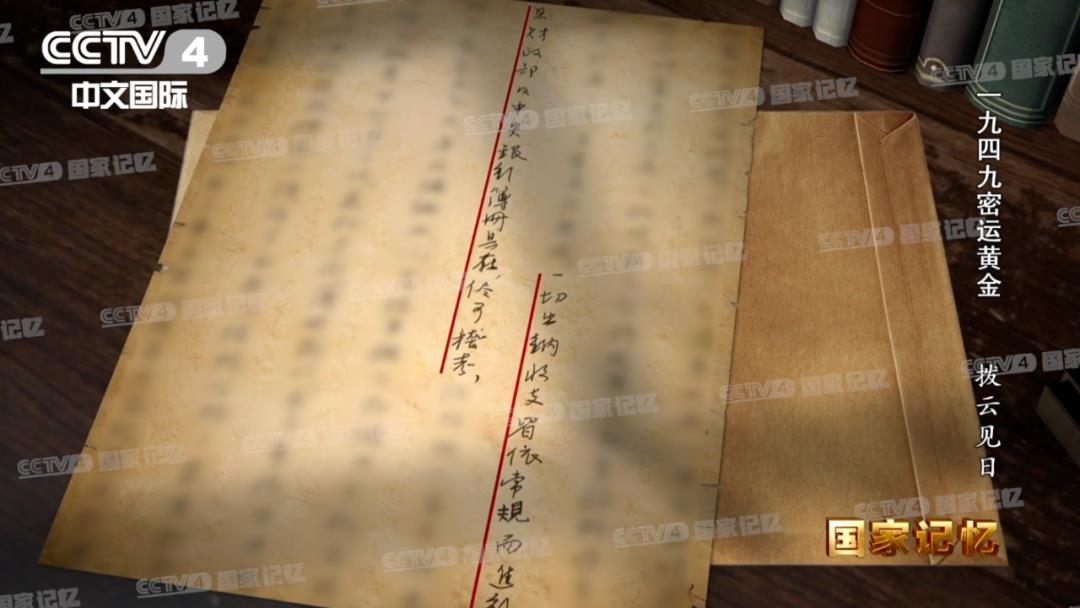 CCTV 4
中文国际
一九四九密运黄金 拨云见日
一切出納收支皆依常規而進行
且财政部及中央銀行簿册具在，可稽考，
国家记忆
CCTV4 国家记忆